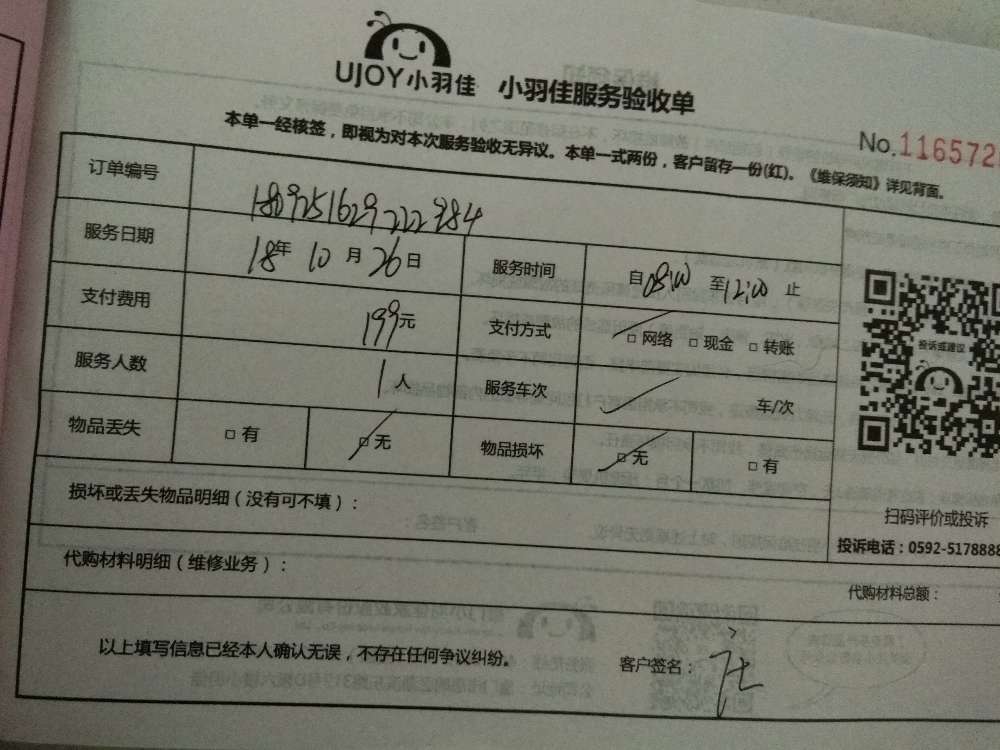 UJOY小羽佳 小羽佳服务验收单
本单一经核签，即视为对本次服务验收无异议。本单一式两份，客户留存一份(红)。《维保须知》详见背面。
No.116572
订单编号 180925162922284
服务日期 18年 10月 26日 服务时间 自08:00至12:00止
支付费用 199元 支付方式 □网络 □现金 □转账
服务人数 1人 服务车次 车/次
物品丢失 □有 □无 物品损坏 □无 □有
投诉或建议
扫码评价或投诉
投诉电话：0592-5178888
损坏或丢失物品明细（没有可不填）：
代购材料明细（维修业务）：
代购材料总额：
以上填写信息已经本人确认无误，不存在任何争议纠纷。 客户签名：